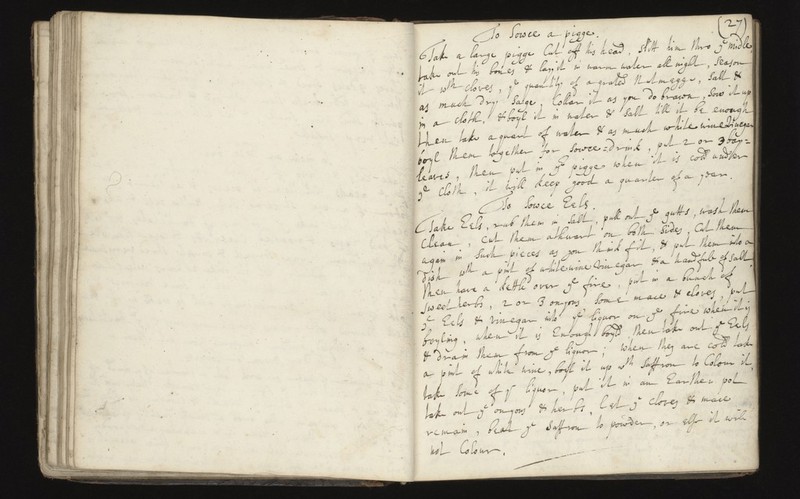 (27)
To Sowce a pigge.
Take a large pigge Cut off his head, slitt him thro ye midle
take out his bones & lay it in warm water all night, season
it wth cloves, ye quantity of a grated Nutmegge, Salt &
as much dry Sage, Collar it as you do brawn, sow it up
in a cloth, & boyl it in water & salt till it be enough
then take a quart of water & as much white wine Vinegar
boyl them together for sowce-drink, put 2 or 3 bay=
leaves, then put in ye pigge when it is cold under
ye cloth, it will keep good a quarter of a year.
To Sowce Eels.
Take Eels, rub them in salt, pull out ye gutts, wash them
clean, cut them athwart on both sides, Cut them
again in such pieces as you think fit, & put them into a
dish wth a pint of white wine Vinegar & a handful of salt
then have a kettle over ye fire, put in a bunch of
sweet herbs, 2 or 3 onyons some mace & cloves, put
ye Eels & Vinegar into ye liquor on ye fire when it is
boyling, when it is Enough boyld then take out ye Eels
& drain them from ye liquor; when they are cold take
a pint of white wine, boyl it up wth saffron to Colour it,
take some of ye liquor, put it in an Earthen pot
take out ye onyons & herbs, let ye cloves & mace
remain, beat ye saffron to powder, or else it will
not Colour.